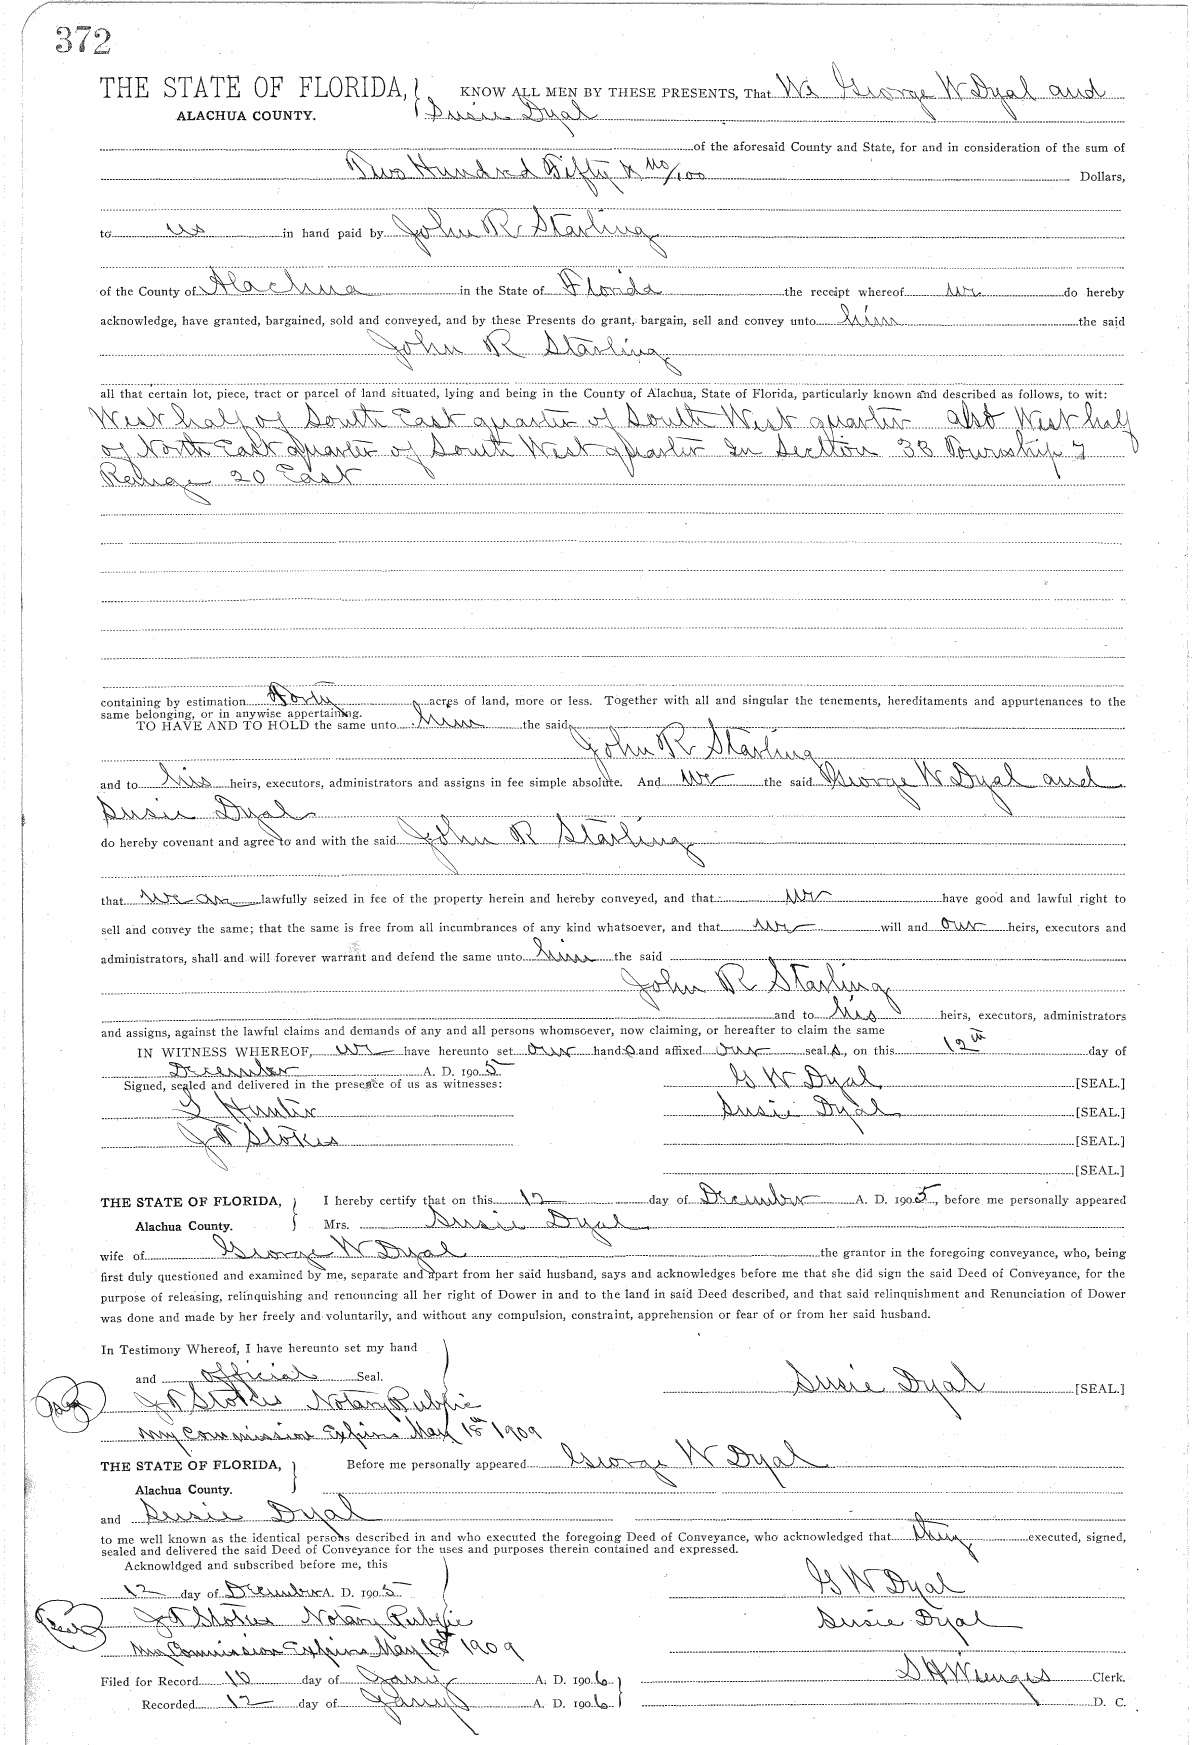 372
THE STATE OF FLORIDA, } KNOW ALL MEN BY THESE PRESENTS, That We George W Dyal and
ALACHUA COUNTY. Susie Dyal
of the aforesaid County and State, for and in consideration of the sum of
Two Hundred Fifty & no/100 Dollars,
to us in hand paid by John R Starling
of the County of Alachua in the State of Florida the receipt whereof we do hereby
acknowledge, have granted, bargained, sold and conveyed, and by these Presents do grant, bargain, sell and convey unto him the said
John R Starling
all that certain lot, piece, tract or parcel of land situated, lying and being in the County of Alachua, State of Florida, particularly known and described as follows, to wit:
West half of South East quarter of South West quarter also West half
of North East quarter of South West quarter In Section 33 Township 7
Range 20 East
containing by estimation Forty acres of land, more or less. Together with all and singular the tenements, hereditaments and appurtenances to the
same belonging, or in anywise appertaining.
TO HAVE AND TO HOLD the same unto him the said
John R Starling
and to his heirs, executors, administrators and assigns in fee simple absolute. And we the said George W Dyal and
Susie Dyal
do hereby covenant and agree to and with the said John R Starling
that we are lawfully seized in fee of the property herein and hereby conveyed, and that we have good and lawful right to
sell and convey the same; that the same is free from all incumbrances of any kind whatsoever, and that we will and our heirs, executors and
administrators, shall and will forever warrant and defend the same unto him the said
John R Starling
and to his heirs, executors, administrators
and assigns, against the lawful claims and demands of any and all persons whomsoever, now claiming, or hereafter to claim the same
IN WITNESS WHEREOF, we have hereunto set our hands and affixed our seals, on this 12th day of
December A. D. 1905
Signed, sealed and delivered in the presence of us as witnesses: G W Dyal [SEAL.]
Hunter Susie Dyal [SEAL.]
J A Stokes [SEAL.]
[SEAL.]
THE STATE OF FLORIDA, } I hereby certify that on this 12 day of December A. D. 1905, before me personally appeared
Alachua County. Mrs. Susie Dyal
wife of George W Dyal the grantor in the foregoing conveyance, who, being
first duly questioned and examined by me, separate and apart from her said husband, says and acknowledges before me that she did sign the said Deed of Conveyance, for the
purpose of releasing, relinquishing and renouncing all her right of Dower in and to the land in said Deed described, and that said relinquishment and Renunciation of Dower
was done and made by her freely and voluntarily, and without any compulsion, constraint, apprehension or fear of or from her said husband.
In Testimony Whereof, I have hereunto set my hand
and official Seal. Susie Dyal [SEAL.]
J A Stokes Notary Public
My Commission Expires May 18th 1909
THE STATE OF FLORIDA, } Before me personally appeared George W Dyal
Alachua County.
and Susie Dyal
to me well known as the identical persons described in and who executed the foregoing Deed of Conveyance, who acknowledged that they executed, signed,
sealed and delivered the said Deed of Conveyance for the uses and purposes therein contained and expressed.
Acknowldged and subscribed before me, this
12 day of December A. D. 1905 G W Dyal
Seal J A Stokes Notary Public Susie Dyal
My Commission Expires May 18th 1909
Filed for Record 10 day of Jany A. D. 1906 S H Wienges Clerk.
Recorded 12 day of Jany A. D. 1906 D. C.